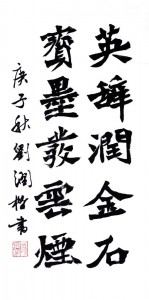 英辭潤金石
寶墨發雲煙
庚子秋劉潤楷書